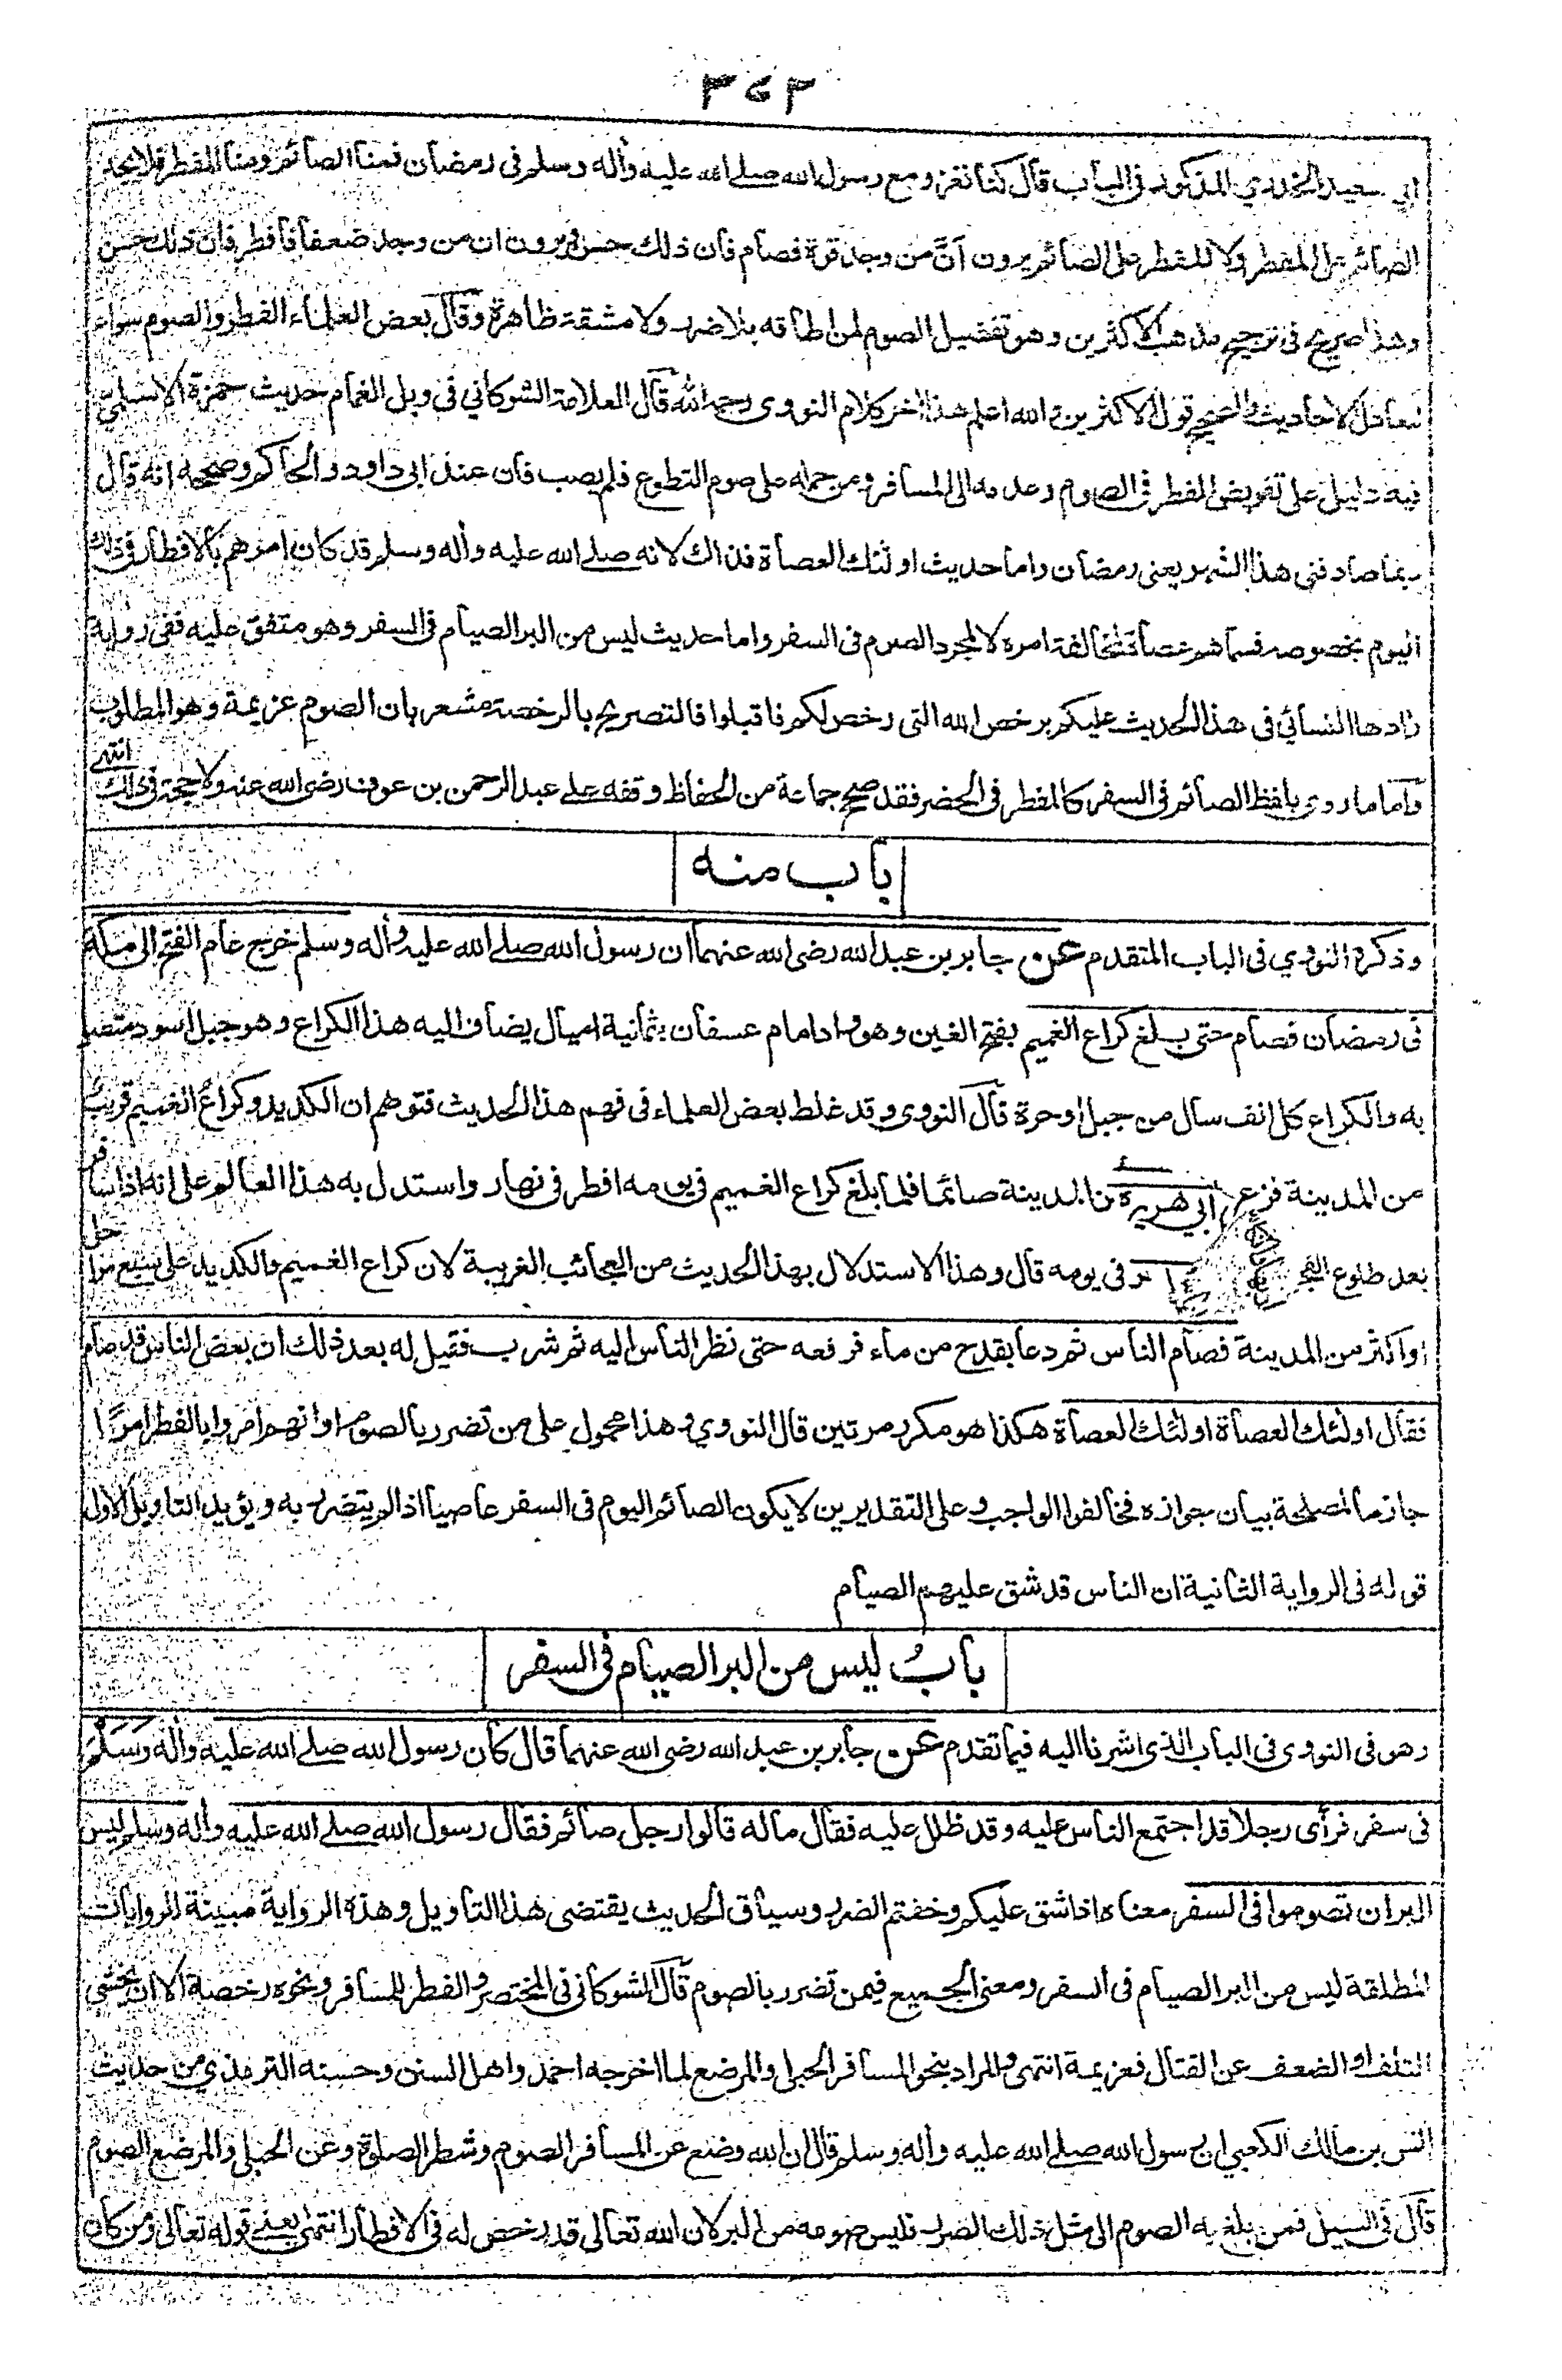 ٣٧٣
ابي سعيد الخدري المذكور في الباب قال كنا نغزو مع رسول الله صلى الله عليه وأله وسلم في رمضان فمنا الصائم ومنا المفطر فلا يجد
الصائم على المفطر ولا المفطر على الصائم يرون أنّ من وجد قوة فصام فان ذلك حسن ويرون ان من وجد ضعفا فأفطر فان ذلك حسن
وهذا صريح في ترجيح مذهب الاكثرين وهو تفضيل الصوم لمن اطاقه بلا ضرر ولا مشقة ظاهرة وقال بعض العلماء الفطر والصوم سواء
لتعادل الاحاديث والصحيح قول الاكثرين والله اعلم هذا اخر كلام النووى رحمه الله قال العلامة الشوكاني في وبل الغمام حديث حمزة الاسلمي
فيه دليل على تفويض الفطر في الصوم وعدمه الى المسافر ومن حمله على صوم التطوع فلم يصب فان عند ابى داود والحاكم وصححه انه قال
ربما صادفنى هذا الشهر يعنى رمضان واما حديث اولئك العصاة فذاك لانه صلى الله عليه وأله وسلم قد كان امرهم بالافطار في ذلك
اليوم بخصوصه فسماهم عصاة لمخالفة امره لا لمجرد الصوم فى السفر واما حديث ليس من البر الصيام فى السفر وهو متفق عليه ففى رواية
زادها النسائي فى هذا الحديث عليكم برخص الله التى رخص لكم فاقبلوا فالتصريح بالرخصة مشعر بان الصوم عزيمة وهو المطلوب
وأما ما روي بلفظ الصائم فى السفر كالمفطر فى الحضر فقد صحح جماعة من الحفاظ وقفه على عبد الرحمن بن عوف رضى الله عنه ولا حجة فى ذلك انتهى
باب منه
وذكره النووي فى الباب المتقدم عن جابر بن عبد الله رضى الله عنهما ان رسول الله صلى الله عليه وأله وسلم خرج عام الفتح الى مكة
فى رمضان فصام حتى بلغ كراع الغميم بفتح الغين وهو واد امام عسفان بثمانية اميال يضاف اليه هذا الكراع وهو جبل اسود متصل
به والكراع كل انف سال من جبل او حرة قال النووى وقد غلط بعض العلماء فى فهم هذا الحديث فتوهم ان الكديد وكراع الغميم قريب
من المدينة فزعم ابي هريرة من المدينة صائما فلما بلغ كراع الغميم فى يومه افطر فى نهار واستدل به هذا العالم على انه اذا سافر
بعد طلوع الفجر فى يومه قال وهذا الاستدلال بهذا الحديث من العجائب الغريبة لان كراع الغميم والكديد على سبع مراحل
او اكثر من المدينة فصام الناس ثم دعا بقدح من ماء فرفعه حتى نظر الناس اليه ثم شرب فقيل له بعد ذلك ان بعض الناس قد صام
فقال اولئك العصاة اولئك العصاة هكذا هو مكرر مرتين قال النووي وهذا محمول على من تضرر بالصوم او انهم امروا بالفطر امرًا
جازما لمصلحة بيان جوازه فخالفوا الواجب وعلى التقديرين لا يكون الصائم اليوم فى السفر عاصيا اذا لم يتضرر به ويؤيد التاويل الاول
قوله فى الرواية الثانية ان الناس قد شق عليهم الصيام
باب ليس من البر الصيام فى السفر
وهو فى النووى فى الباب الذى اشرنا اليه فيما تقدم عن جابر بن عبد الله رضى الله عنهما قال كان رسول الله صلى الله عليه وأله وسلم
فى سفر فرأى رجلا قد اجتمع الناس عليه وقد ظلل عليه فقال ماله قالوا رجل صائم فقال رسول الله صلى الله عليه وأله وسلم ليس
البر ان تصوموا فى السفر معناه اذا شق عليكم وخفتم الضرر وسياق الحديث يقتضى هذا التاويل وهذه الرواية مبينة للروايات
المطلقة ليس من البر الصيام فى السفر ومعنى الجميع فيمن تضرر بالصوم قال الشوكانى فى المختصر والفطر للمسافر ونحوه رخصة الا ان يخشى
التلف او الضعف عن القتال فعزيمة انتهى والمراد بنحو المسافر الحبلى والمرضع لما اخرجه احمد واهل السنن وحسنه الترمذي من حديث
انس بن مالك الكعبي ان رسول الله صلى الله عليه وأله وسلم قال ان الله وضع عن المسافر الصوم وشطر الصلوة وعن الحبلى والمرضع الصوم
قال فى السيل فمن بلغ به الصوم الى مثل ذلك الضرر فليس صومه من البر لان الله تعالى قد رخص له فى الافطار انتهى يعنى قوله تعالى ومن كان